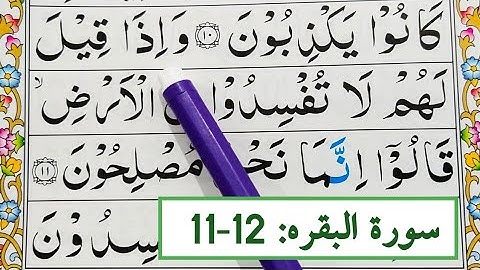 كَانُوْا يَكْذِبُوْنَ ۝۱۰ وَاِذَا قِيْلَ
لَهُمْ لَا تُفْسِدُوْا الْاَرْضِ ۙ
قَالُوْٓا اِنَّمَا نَحْنُ مُصْلِحُوْنَ ۝۱۱
سورة البقره: 12-11